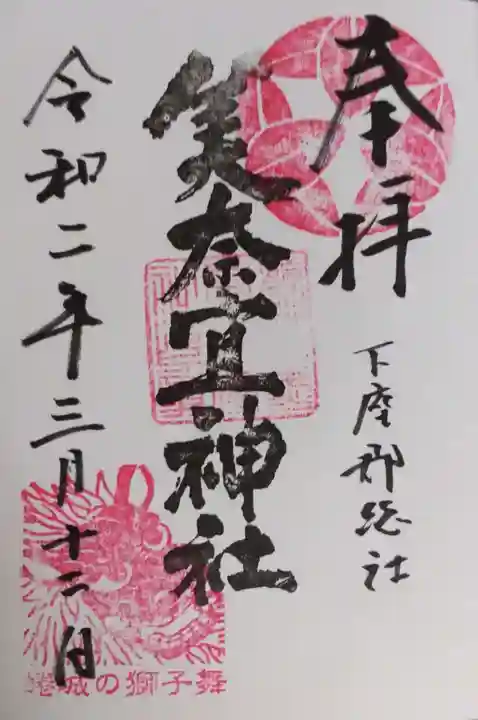 奉拝
下座郡総社
美奈宜神社
令和二年三月十二日
城の獅子舞